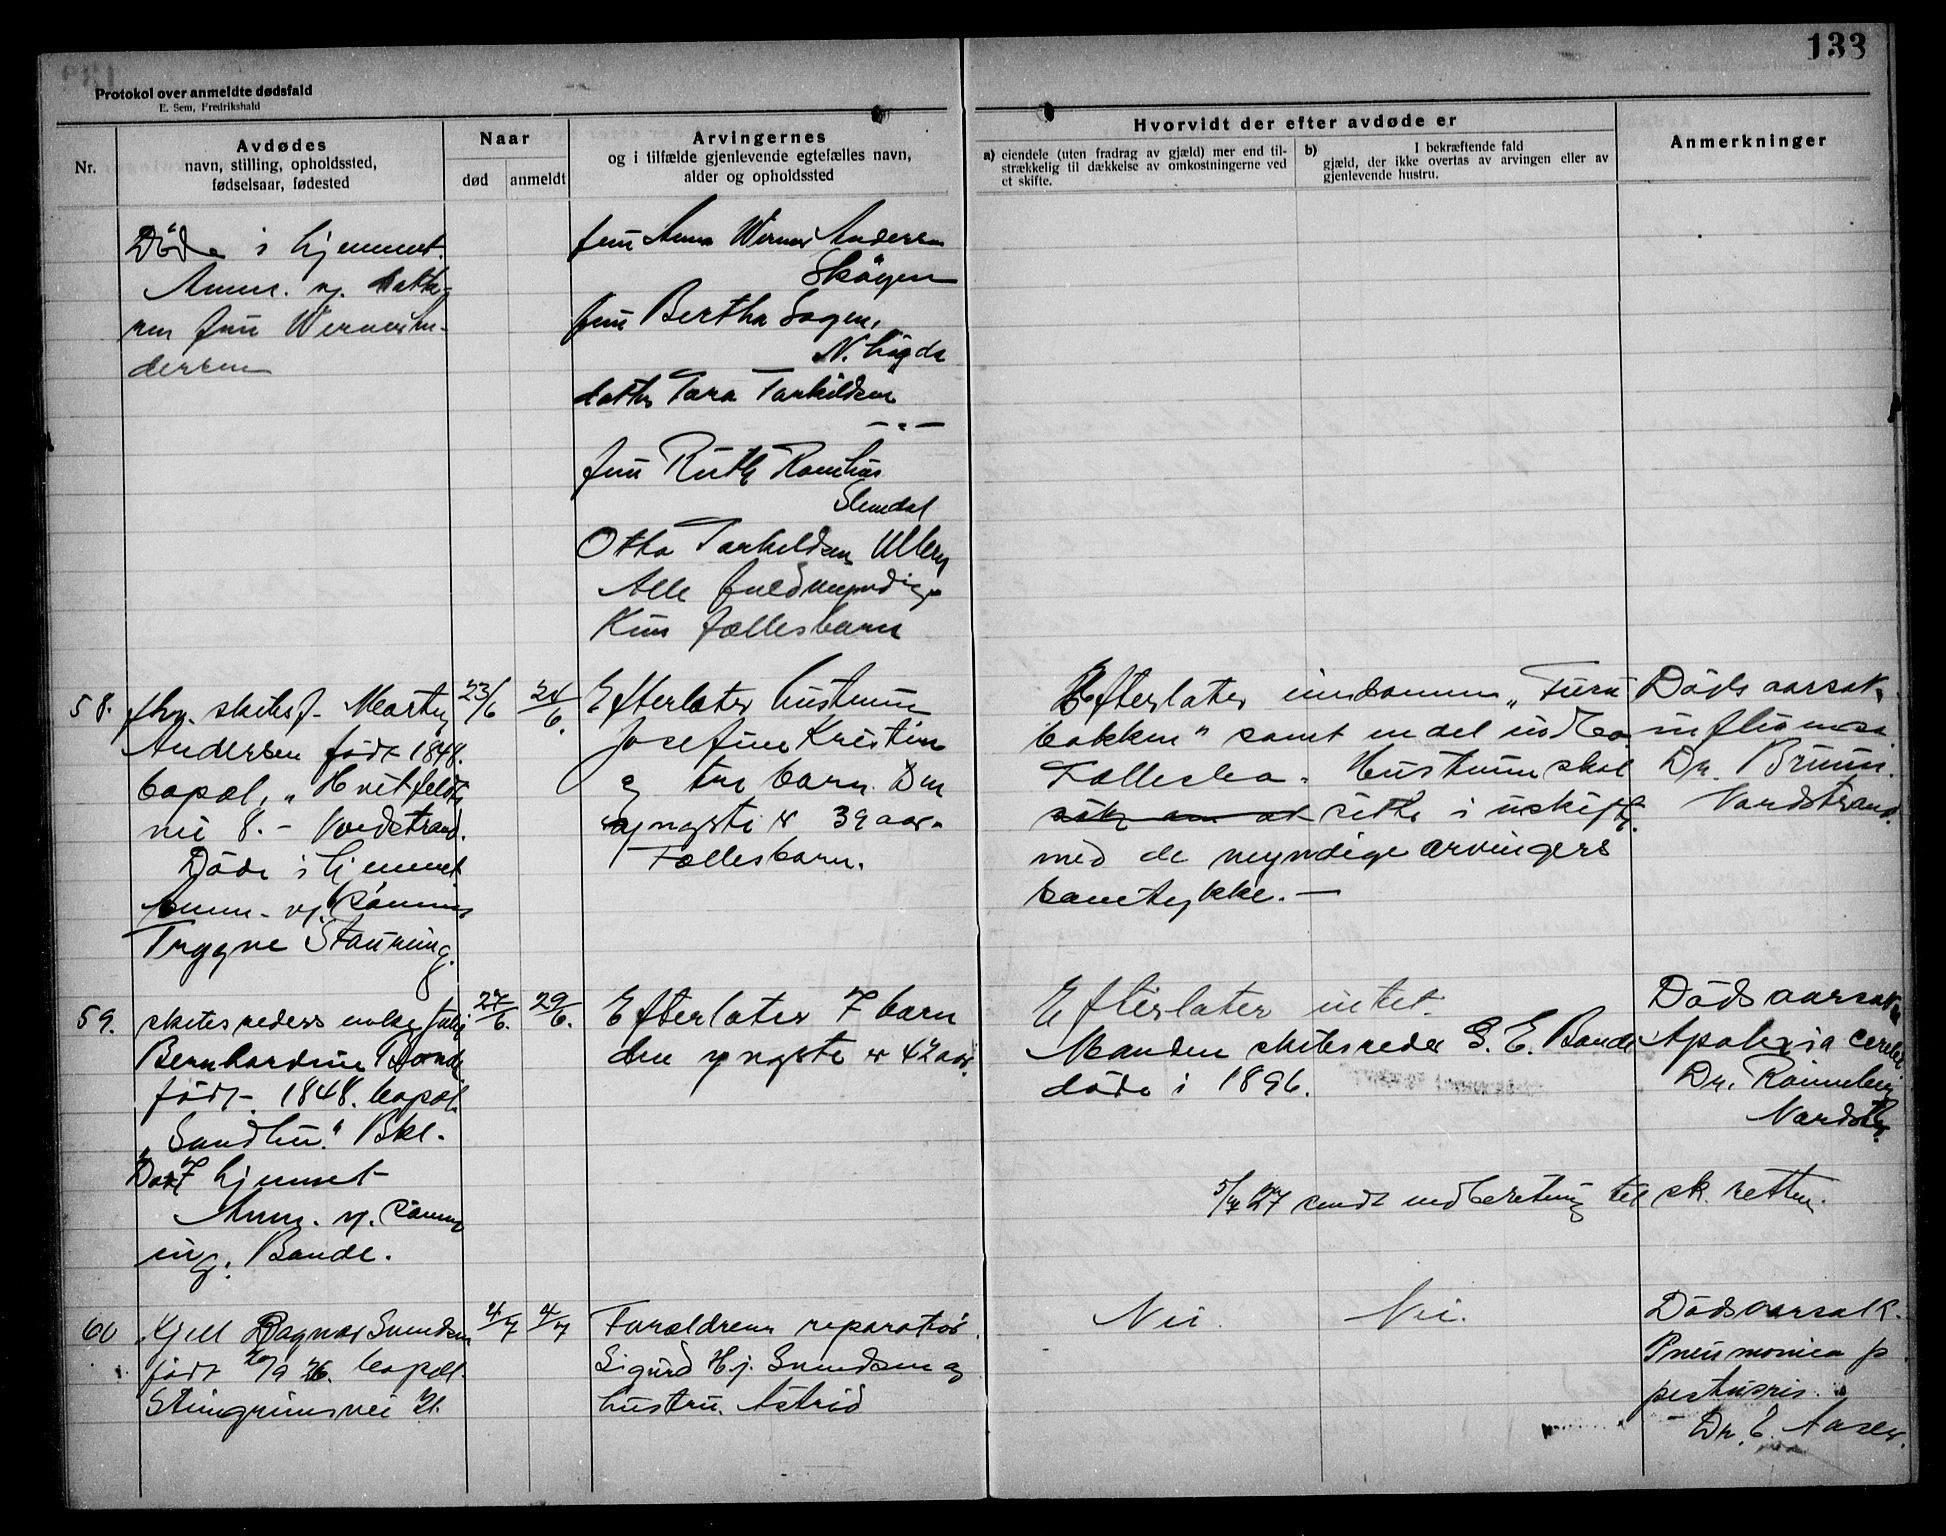 133
Protokol over anmeldte dødsfald
E. Sem, Fredrikshald
Nr.
Avdødes
navn, stilling, opholdssted,
fødselsaar, fødested
Naar
død
anmeldt
Arvingernes
og i tilfælde gjenlevende egtefælles navn,
alder og opholdssted
Hvorvidt der efter avdøde er
a) eiendele (uten fradrag av gjæld) mer end til-
strækkelig til dækkelse av omkostningerne ved
et skifte.
b) I bekræftende fald
gjæld, der ikke overtas av arvingen eller av
gjenlevende hustru.
Anmerkninger
Døde i hjemmet.
Anm. v. datte-
ren fru Werner An-
dersen
fru Anna Werner Andersen
Skøyen
fru Bertha Sogen,
N.
datter Tora Tarkildsen
— " —
fru Ruth
Slemdal
Otto Tarkildsen Ullern
Alle fuldmyndige
Kun fællesbarn
58. fhv. skibsf. Martin
Andersen født 1848.
bopæl, "Hvitfeldts
vei 8. - Nordstrand.
Døde i hjemmet
Anm. v. sønnen
Trygve
23/6
24/6.
Efterlater hustruen
Josefine Kristine
og tre barn. Den
yngste er 39 aar.
Fællesbarn.
Efterlater eiendommen "Furu
bakken" samt en del indbo
Fællesbo. Hustruen skal
søke om at sitte i uskifte
med de myndige arvingers
samtykke. —
Dødsaarsak
influensa.
Dr. Bruun.
Nordstrand.
59. skibsreders enke
Bernhardine Bonde
født 1848. bopæl.
Bkl.
Død i hjemmet
Anm. v. sønnen
ing. Bonde.
27/6.
29/6.
Efterlater 7 barn
den yngste er 42 aar.
Efterlater intet.
Manden skibsreder S. E. Bonde
døde i 1896.
Dødsaarsak
Apoplexia cerebri
Dr. Rønneberg
Nordstr.
5/7 27 sendt indberetning til sk. retten.
60 Kjell Ragnar Svendsen
født 20/9 26. bopæl.
Steingrimsvei 21.
4/7
4/7
Forældrene reparatør
Sigurd Hj. Svendsen og
hustru Astrid
Nei.
Nei.
Dødsaarsak.
Pneumonica p.
pertussis.
Dr. E. Aaser.